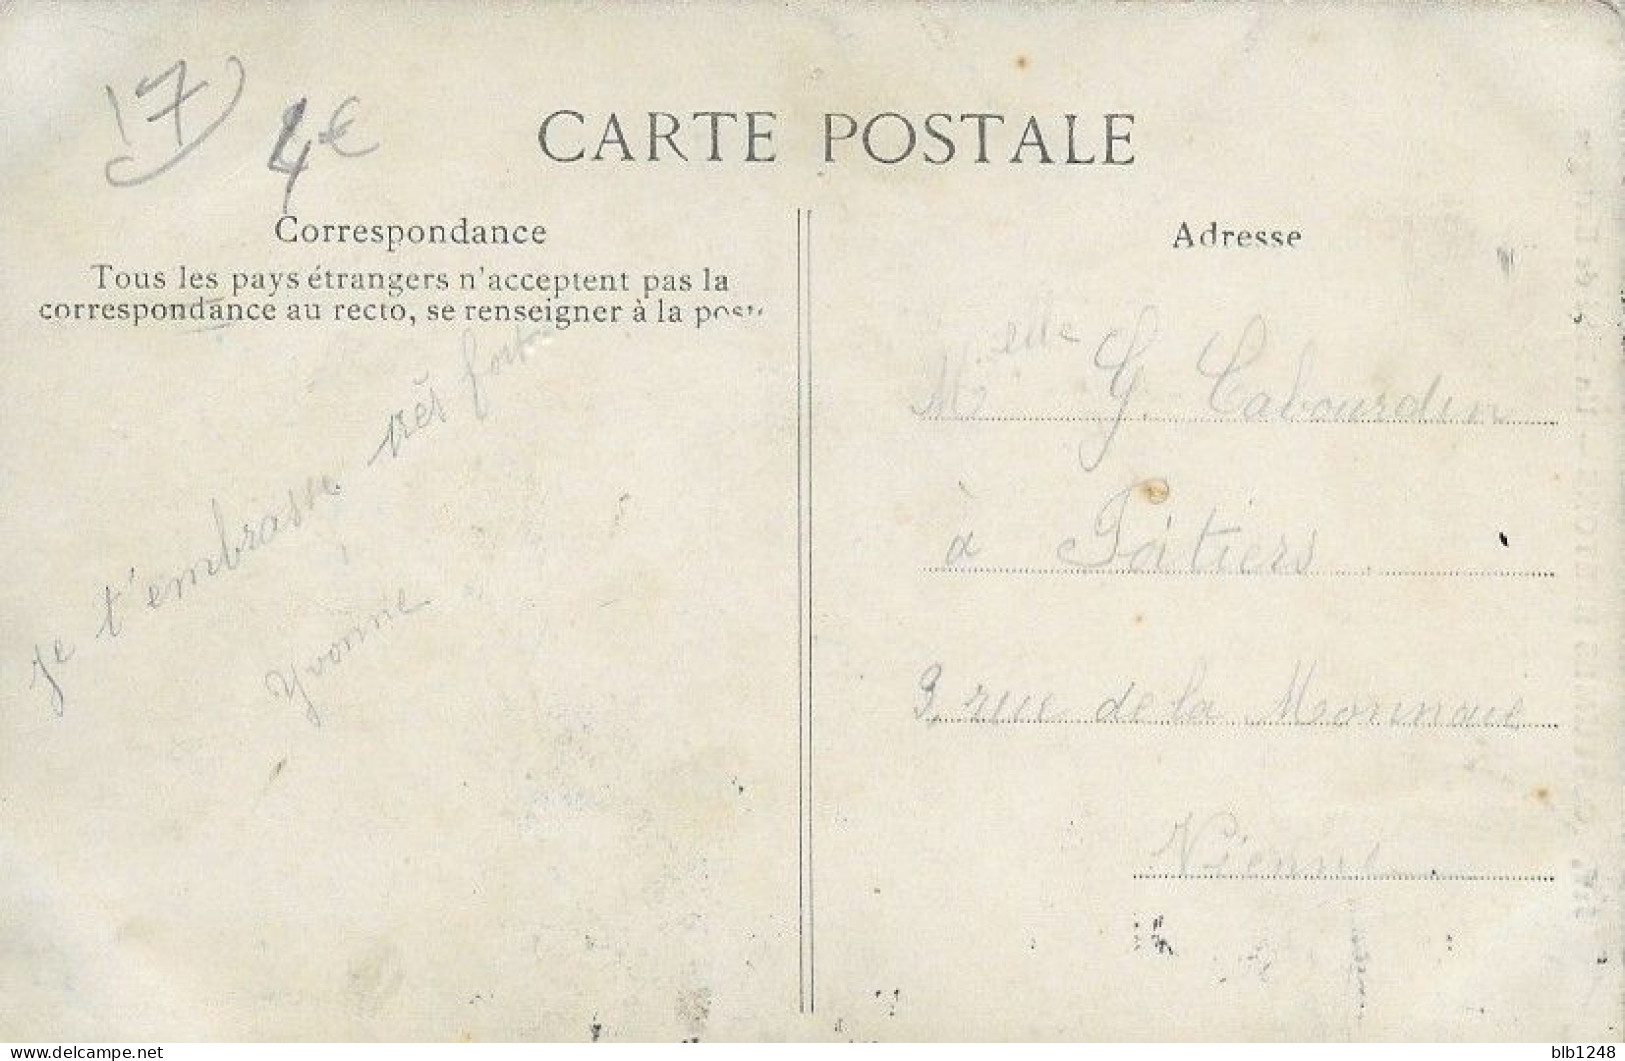 17
4€
CARTE POSTALE
Correspondance
Tous les pays étrangers n'acceptent pas la
correspondance au recto, se renseigner à la poste
Je t'embrasse très fort
Yvonne
Adresse
Melle G. Cabourdin
à Poitiers
9, rue de la Monnaie
Vienne
blb1248